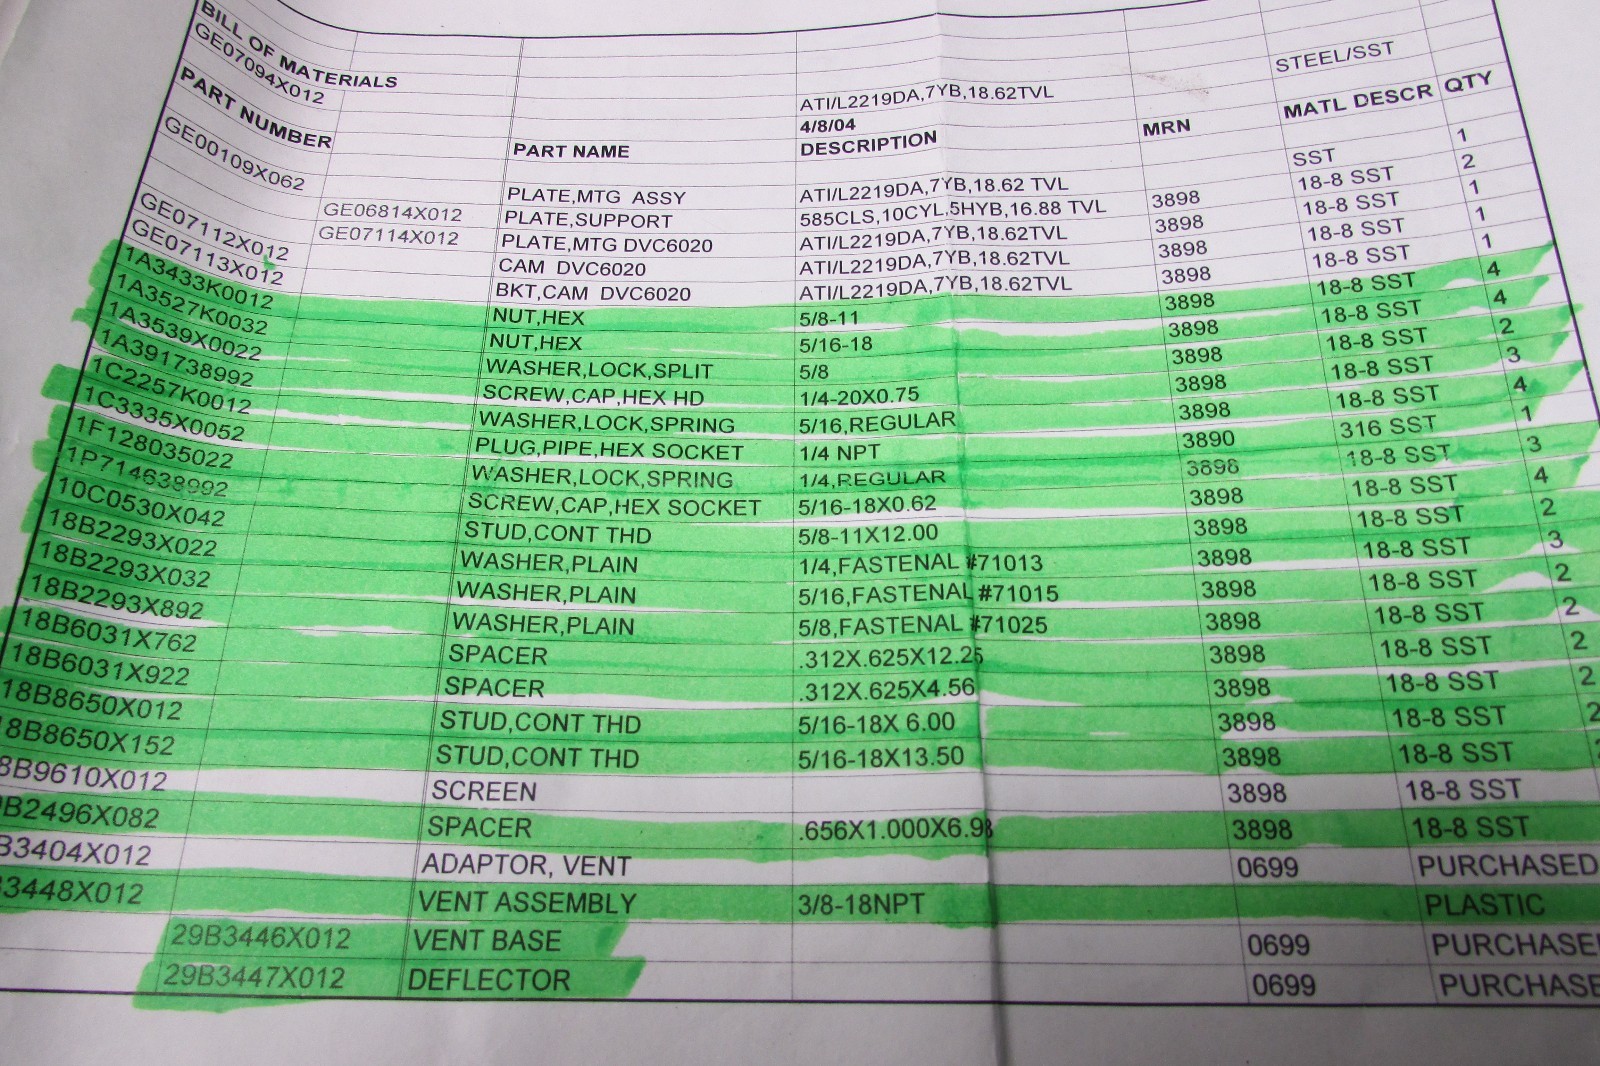 BILL OF MATERIALS
GE07094X012 ATI/L2219DA,7YB,18.62TVL STEEL/SST
4/8/04
PART NUMBER PART NAME DESCRIPTION MRN MATL DESCR QTY
GE00109X062 PLATE,MTG ASSY ATI/L2219DA,7YB,18.62 TVL SST 1
GE06814X012 PLATE,SUPPORT 585CLS,10CYL,5HYB,16.88 TVL 3898 18-8 SST 2
GE07114X012 PLATE,MTG DVC6020 ATI/L2219DA,7YB,18.62TVL 3898 18-8 SST 1
GE07112X012 CAM DVC6020 ATI/L2219DA,7YB,18.62TVL 3898 18-8 SST 1
GE07113X012 BKT,CAM DVC6020 ATI/L2219DA,7YB,18.62TVL 3898 18-8 SST 1
1A3433K0012 NUT,HEX 5/8-11 3898 18-8 SST 4
1A3527K0032 NUT,HEX 5/16-18 3898 18-8 SST 4
1A3539X0022 WASHER,LOCK,SPLIT 5/8 3898 18-8 SST 2
1A391738992 SCREW,CAP,HEX HD 1/4-20X0.75 3898 18-8 SST 3
1C2257K0012 WASHER,LOCK,SPRING 5/16,REGULAR 3898 18-8 SST 4
1C3335X0052 PLUG,PIPE,HEX SOCKET 1/4 NPT 3890 316 SST 1
1F128035022 WASHER,LOCK,SPRING 1/4,REGULAR 3898 18-8 SST 3
1P714638992 SCREW,CAP,HEX SOCKET 5/16-18X0.62 3898 18-8 SST 4
10C0530X042 STUD,CONT THD 5/8-11X12.00 3898 18-8 SST 2
18B2293X022 WASHER,PLAIN 1/4,FASTENAL #71013 3898 18-8 SST 3
18B2293X032 WASHER,PLAIN 5/16,FASTENAL #71015 3898 18-8 SST 2
18B2293X892 WASHER,PLAIN 5/8,FASTENAL #71025 3898 18-8 SST 2
18B6031X762 SPACER .312X.625X12.25 3898 18-8 SST 2
18B6031X922 SPACER .312X.625X4.56 3898 18-8 SST 2
18B8650X012 STUD,CONT THD 5/16-18X 6.00 3898 18-8 SST 2
8B8650X152 STUD,CONT THD 5/16-18X13.50 3898 18-8 SST
8B9610X012 SCREEN 3898 18-8 SST
B2496X082 SPACER .656X1.000X6.98 3898 18-8 SST
B3404X012 ADAPTOR, VENT 0699 PURCHASED
3448X012 VENT ASSEMBLY 3/8-18NPT PLASTIC
29B3446X012 VENT BASE 0699 PURCHASE
29B3447X012 DEFLECTOR 0699 PURCHASE